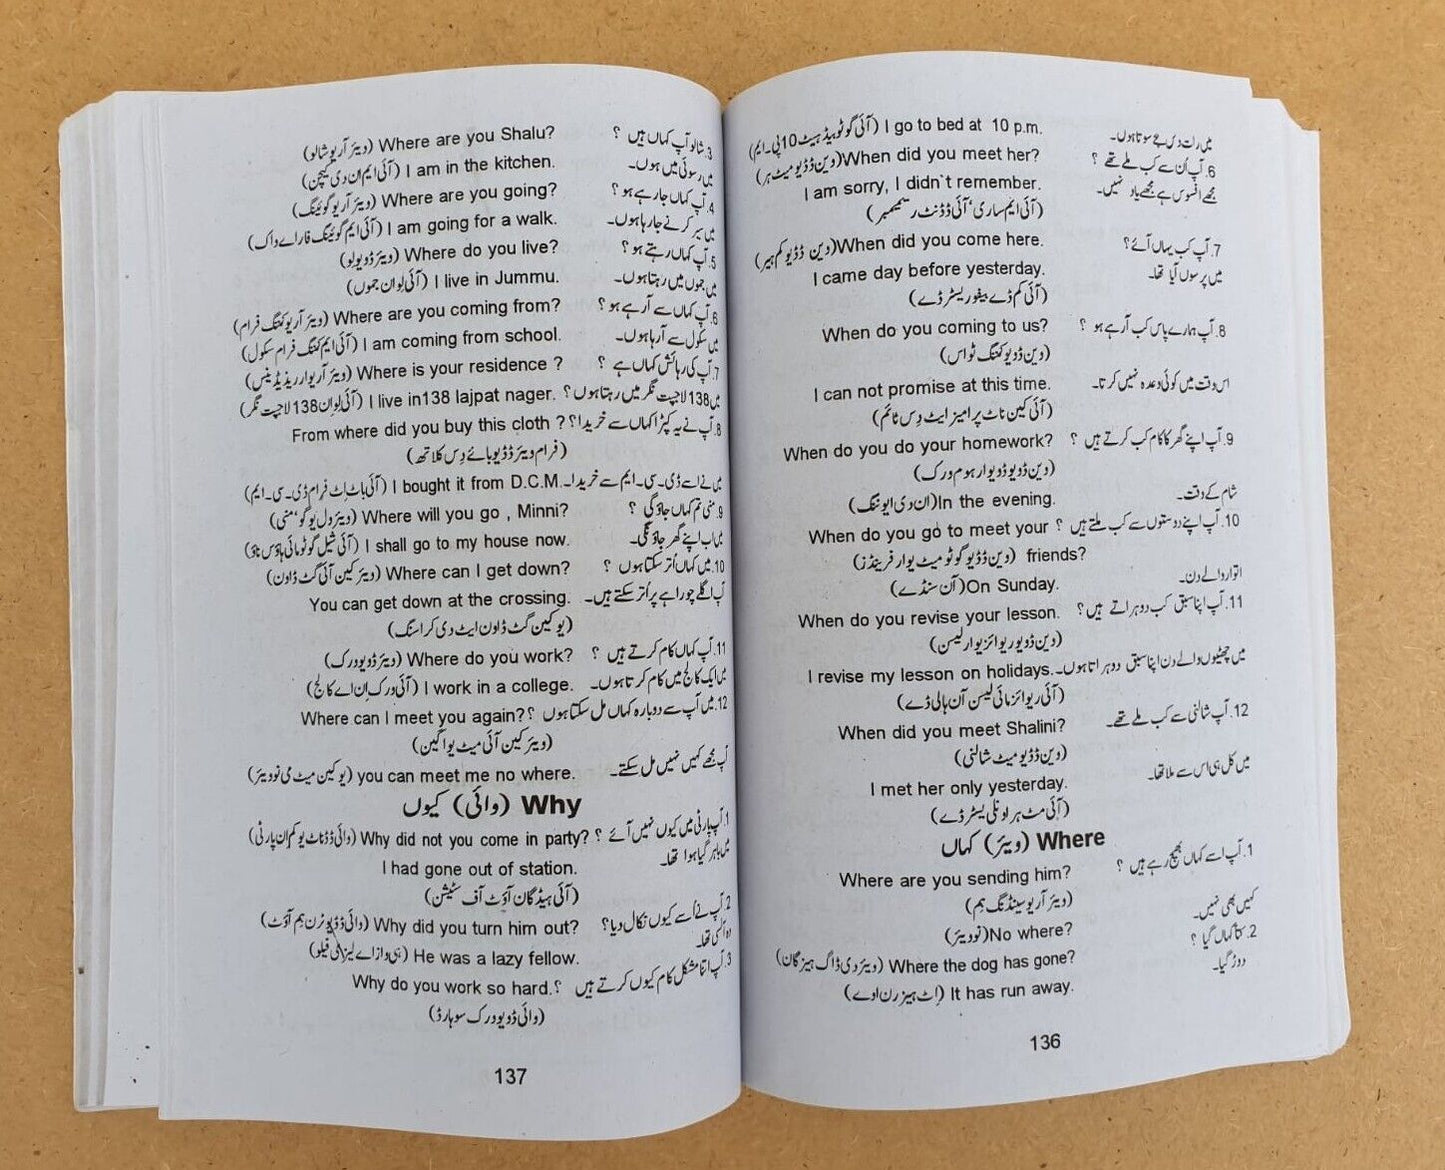 میں رات دس بجے سوتا ہوں۔ I go to bed at 10 p.m. (آئی گو ٹو بیڈ ایٹ 10 پی۔ایم)
6. آپ اُن سے کب ملے تھے ؟ When did you meet her? (وین ڈڈ یو میٹ ہر)
مجھے افسوس ہے مجھے یاد نہیں۔ I am sorry, I didn`t remember.
(آئی ایم ساری‘ آئی ڈڈنٹ ریمیمبر)
7. آپ کب یہاں آئے؟ When did you come here. (وین ڈڈ یو کم ہیر)
میں پرسوں آیا تھا۔ I came day before yesterday.
(آئی کم ڈے بیفور یسٹرڈے)
8. آپ ہمارے پاس کب آرہے ہو ؟ When do you coming to us?
(وین ڈو یو کمنگ ٹو اس)
اس وقت میں کوئی وعدہ نہیں کرتا۔ I can not promise at this time.
(آئی کین ناٹ پرامیز ایٹ دِس ٹائم)
9. آپ اپنے گھر کا کام کب کرتے ہیں ؟ When do you do your homework?
(وین ڈو یو ڈو یوار ہوم ورک)
شام کے وقت۔ In the evening. (اِن دی ایوننگ)
10. آپ اپنے دوستوں سے کب ملتے ہیں ؟ When do you go to meet your
friends? (وین ڈڈ یو گو ٹو میٹ یوار فرینڈز)
اتوار والے دن۔ On Sunday. (آن سنڈے)
11. آپ اپنا سبق کب دوہراتے ہیں؟ When do you revise your lesson.
(وین ڈو یو ریوائز یوار لیسن)
میں چھٹیوں والے دن اپنا سبق دوہراتا ہوں۔ I revise my lesson on holidays.
(آئی ریوائز مائی لیسن آن ہالی ڈے)
12. آپ شالنی سے کب ملے تھے۔ When did you meet Shalini?
(وین ڈڈ یو میٹ شالنی)
میں کل ہی اس سے ملا تھا۔ I met her only yesterday.
(آئی مٹ ہر اونلی یسٹرڈے)
Where (ویئر) کہاں
1. آپ اسے کہاں بھیج رہے ہیں ؟ Where are you sending him?
(ویئر آر یو سینڈنگ ہِم)
کہیں بھی نہیں۔ No where? (نو ویئر)
2. کتا کہاں گیا ؟ Where the dog has gone? (ویئر دی ڈاگ ہیز گان)
دوڑ گیا۔ It has run away. (اِٹ ہیز رن اوے)
136
3. شالو آپ کہاں ہیں ؟ Where are you Shalu? (ویئر آر یو شالو)
میں رسوئی میں ہوں۔ I am in the kitchen. (آئی ایم اِن دی کیچن)
4. آپ کہاں جارہے ہو ؟ Where are you going? (ویئر آر یو گوئینگ)
میں سیر کرنے جارہا ہوں۔ I am going for a walk. (آئی ایم گوئینگ فار اے واک)
5. آپ کہاں رہتے ہو ؟ Where do you live? (ویئر ڈو یو لو)
میں جموں میں رہتا ہوں۔ I live in Jummu. (آئی لِو اِن جموں)
6. آپ کہاں سے آرہے ہو ؟ Where are you coming from? (ویئر آر یو کمنگ فرام)
میں سکول سے آرہا ہوں۔ I am coming from school. (آئی ایم کمنگ فرام سکول)
7. آپ کی رہائش کہاں ہے ؟ Where is your residence ? (ویئر آر یوار ریذیڈینس)
میں 138 لاجپت نگر میں رہتا ہوں؟ I live in138 lajpat nager. (آئی لِو اِن 138 لاجپت نگر)
8. آپ نے یہ کپڑا کہاں سے خریدا؟ From where did you buy this cloth ?
(فرام ویئر ڈڈ یو بائے دِس کلاتھ)
میں نے اسے ڈی۔سی۔ایم سے خریدا۔ I bought it from D.C.M. (آئی باٹ اِٹ فرام ڈی۔سی۔ایم)
9. منی تم کہاں جاؤگی ؟ Where will you go , Minni? (ویئر وِل یو گو‘ منی)
میں اب اپنے گھر جاؤنگی۔ I shall go to my house now. (آئی شیل گو ٹو مائی ہاؤس ناؤ)
10. میں کہاں اُتر سکتا ہوں ؟ Where can I get down? (ویئر کین آئی گٹ ڈاون)
آپ اگلے چوراہے پر اُتر سکتے ہیں۔ You can get down at the crossing.
(یو کین گٹ ڈاون ایٹ دی کراسنگ)
11. آپ کہاں کام کرتے ہیں ؟ Where do you work? (ویئر ڈو یو ورک)
میں ایک کالج میں کام کرتا ہوں۔ I work in a college. (آئی ورک اِن اے کالج)
12. میں آپ سے دوبارہ کہاں مل سکتا ہوں ؟ Where can I meet you again?
(ویئر کین آئی میٹ یو اگین)
آپ مجھے کہیں نہیں مل سکتے۔ you can meet me no where. (یو کین میٹ می نو ویئر)
Why (وائی) کیوں
1. آپ پارٹی میں کیوں نہیں آئے ؟ Why did not you come in party? (وائی ڈڈ ناٹ یو کم اِن پارٹی)
میں باہر گیا ہوا تھا۔ I had gone out of station.
(آئی ہیڈ گان آؤٹ آف سٹیشن)
2. آپ نے اُسے کیوں نکال دیا؟ Why did you turn him out? (وائی ڈڈ یو ٹرن ہِم آؤٹ)
وہ آلسی تھا۔ He was a lazy fellow. (ہی واز اے لیزائی فیلو)
3. آپ اتنا مشکل کام کیوں کرتے ہیں ؟ Why do you work so hard.
(وائی ڈو یو ورک سو ہارڈ)
137